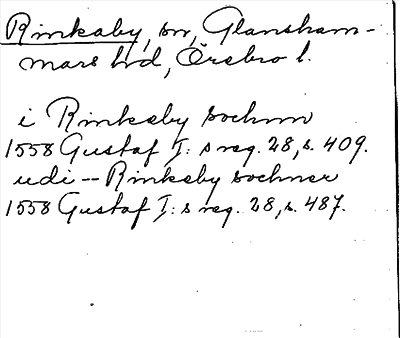 Rinkaby, sn, Glansham-
mars hd, Örebro l.
i Rinkeby sochnn
1558 Gustaf I:s reg. 28, s. 409.
udi -- Rinkeby sochner
1558 Gustaf I:s reg. 28, s. 487.